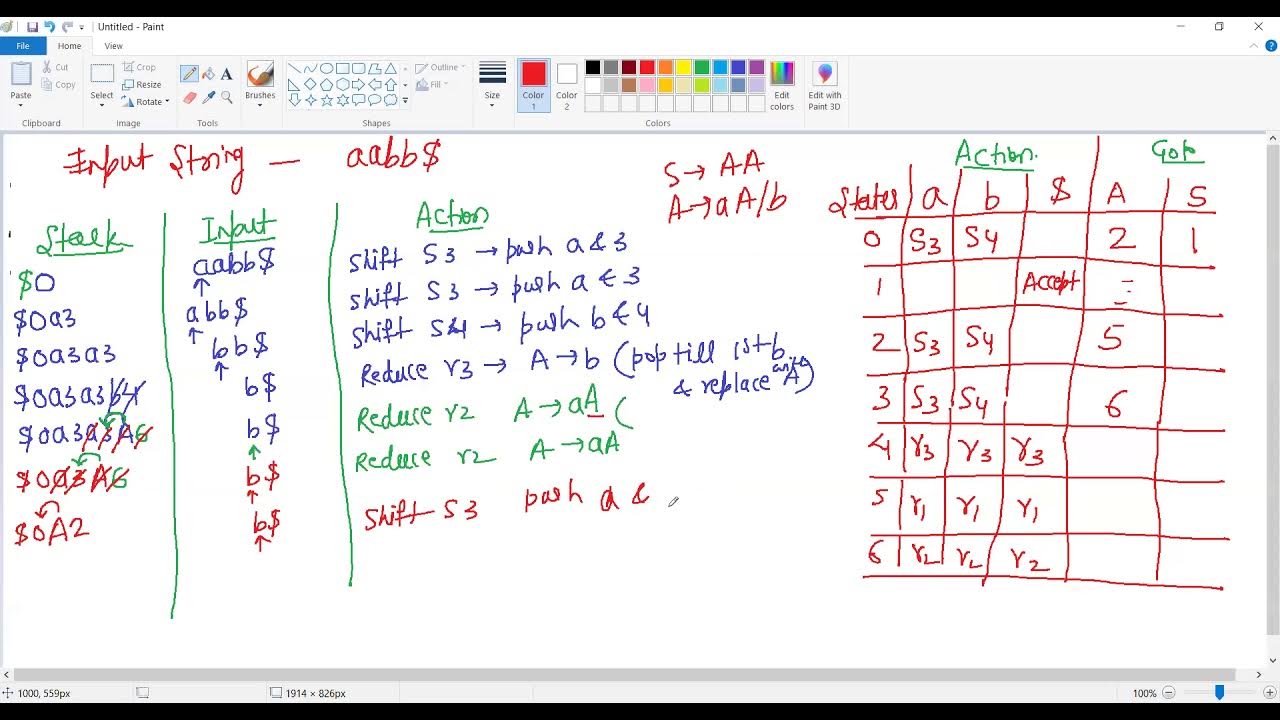 Untitled - Paint
File Home View
Paste Cut Copy
Clipboard
Select Crop Resize Rotate
Image
Tools
Brushes
Shapes
Outline
Fill
Size
Color 1
Color 2
Edit colors
Edit with Paint 3D
Colors
Input String — aabb$
S → AA
A → aA/b
Stack Input Action
$0 aabb$ Shift S3 → push a & 3
$0a3 abb$ Shift S3 → push a & 3
$0a3a3 bb$ Shift S4 → push b & 4
$0a3a3b4 b$ Reduce r3 → A → b (pop till 1st b & replace with A)
$0a3a3A6 b$ Reduce r2 A → aA (
$0a3A6 b$ Reduce r2 A → aA
$0A2 b$ Shift S3 push a &
Action Goto
States a b $ A S
0 S3 S4 2 1
1 Accept
2 S3 S4 5
3 S3 S4 6
4 r3 r3 r3
5 r1 r1 r1
6 r2 r2 r2
1000, 559px
1914 × 826px
100%